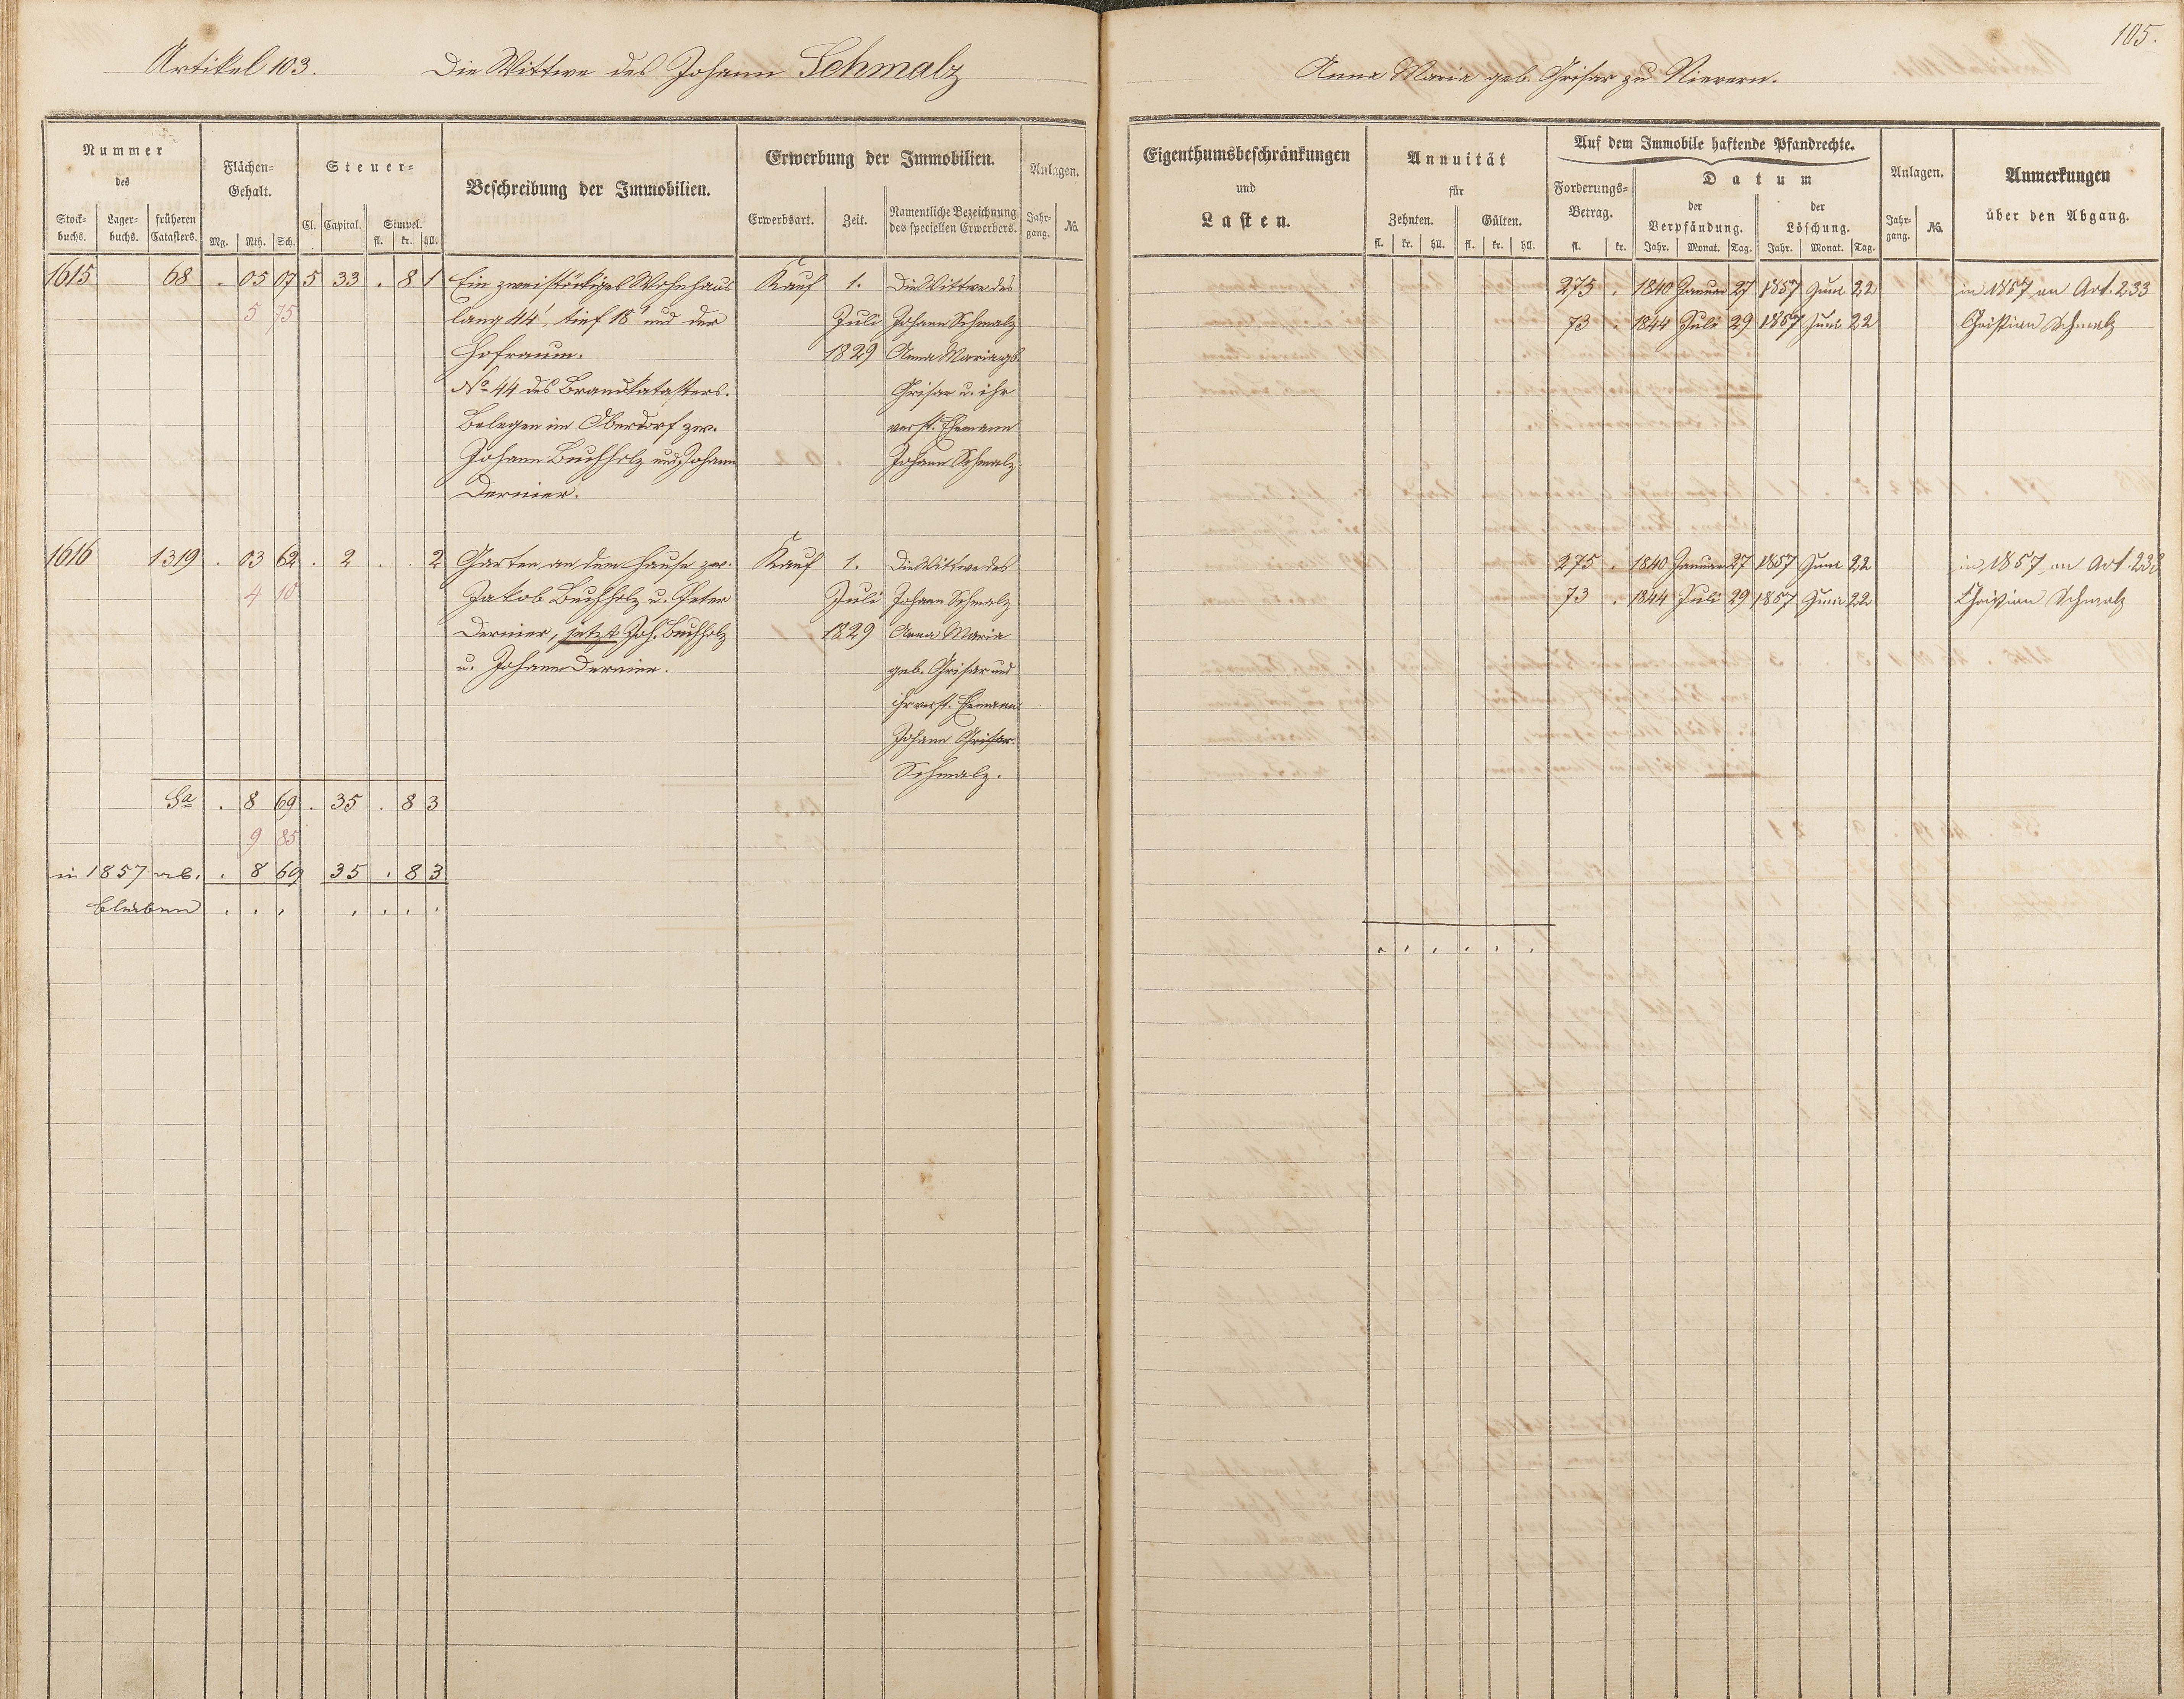 105.
Artikel 103. Die Wittwe des Johann Schmalz Anna Maria geb. Grisar zu Nievern.
Nummer des
Stock-buchs. Lager-buchs. früheren Catasters.
Flächen-Gehalt.
Mg. Rth. Sch.
Steuer-
Cl. Capital. Simpel.
fl. kr. hll.
Beschreibung der Immobilien.
Erwerbung der Immobilien.
Erwerbsart. Zeit. Namentliche Bezeichnung des speciellen Erwerbers.
Anlagen.
Jahr-gang. No.
Eigenthumsbeschränkungen
und
Lasten.
Annuität
für
Zehnten. Gülten.
fl. kr. hll. fl. kr. hll.
Auf dem Immobile haftende Pfandrechte.
Forderungs-Betrag.
fl. kr.
Datum
der Verpfändung. der Löschung.
Jahr. Monat. Tag. Jahr. Monat. Tag.
Anlagen.
Jahr-gang. No.
Anmerkungen
über den Abgang.
1615 68 . 05 07 5 33 . 8 1 Ein zweistöckiges Wohnhaus Kauf 1. Die Wittwe des 275 . 1840 Januar 27 1857 Juni 22 in 1857 an Art. 233
5 75 lang 44', tief 18' und der Juli Johann Schmalz 73 . 1844 Juli 29 1857 Juni 22 Christian Schmalz
Hofraum. 1829 Anna Maria geb.
No 44 des Brandkatasters. Grisar u. ihr
Belegen im Oberdorf zw. verst. Ehemann
Johann Buchholz und Johann Johann Schmalz.
Dernier.
1616 1319 . 03 62 . 2 . . 2 Garten an dem Hause zw. Kauf 1. Die Wittwe des 275 . 1840 Januar 27 1857 Juni 22 in 1857 an Art. 233
4 10 Jakob Buchholz u. Peter Juli Johann Schmalz 73 . 1844 Juli 29 1857 Juni 22 Christian Schmalz
Dernier, jetzt Joh. Buchholz 1829 Anna Maria
u. Johann Dernier. geb. Grisar und
ihr verst. Ehemann
Johann Grisar.
Schmalz.
Sa . 8 69 . 35 . 8 3
9 85
in 1857 ab. . 8 69 35 . 8 3
bleiben . . . . . . .
. . . . . .